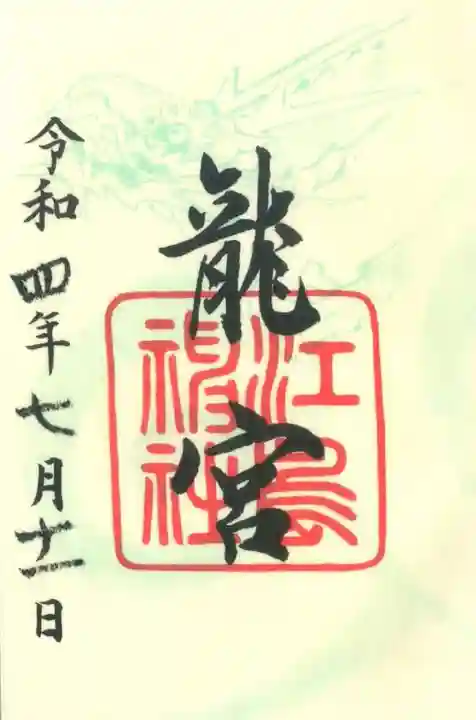 龍宮
江島神社
令和四年七月十一日